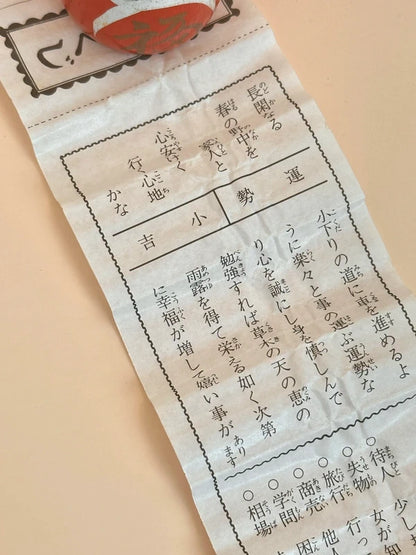 くじ
長閑なる
春の野中を
家人と
心安く
行く心地
かな
運勢
小吉
小下りの道に車を進めるよ
うに楽々と事の運ぶ運勢な
り心を誠にし身を慎しんで
勉強すれば草木の天の恵の
雨露を得て栄える如く次第
に幸福が増して嬉い事があります
○待人 少し
○失物 女が知
○旅行 行っ
○商売 他
○学問 困
○相場